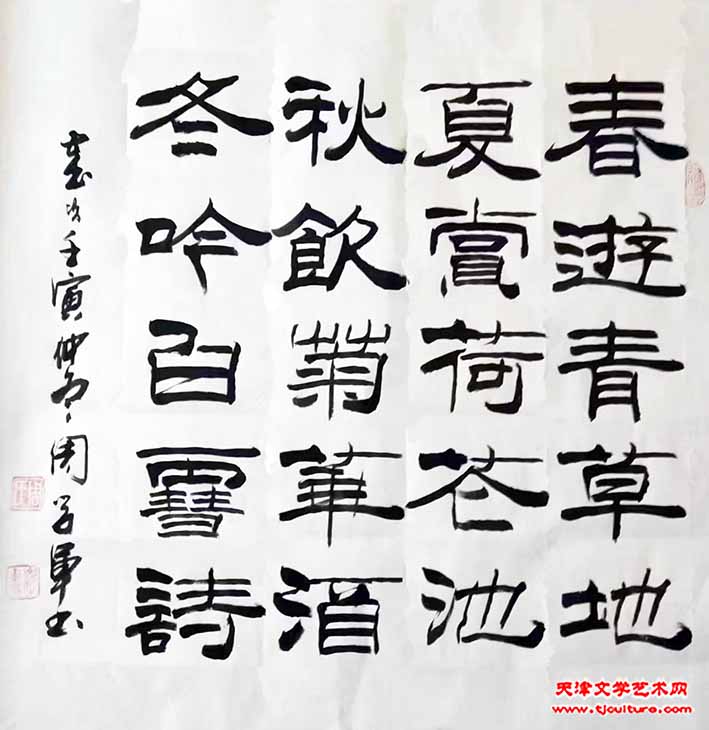 春遊青草地
夏賞荷花池
秋飲菊華酒
冬吟白雪詩
歲次壬寅仲冬周学軍书
天津文学艺术网
www.tjculture.com